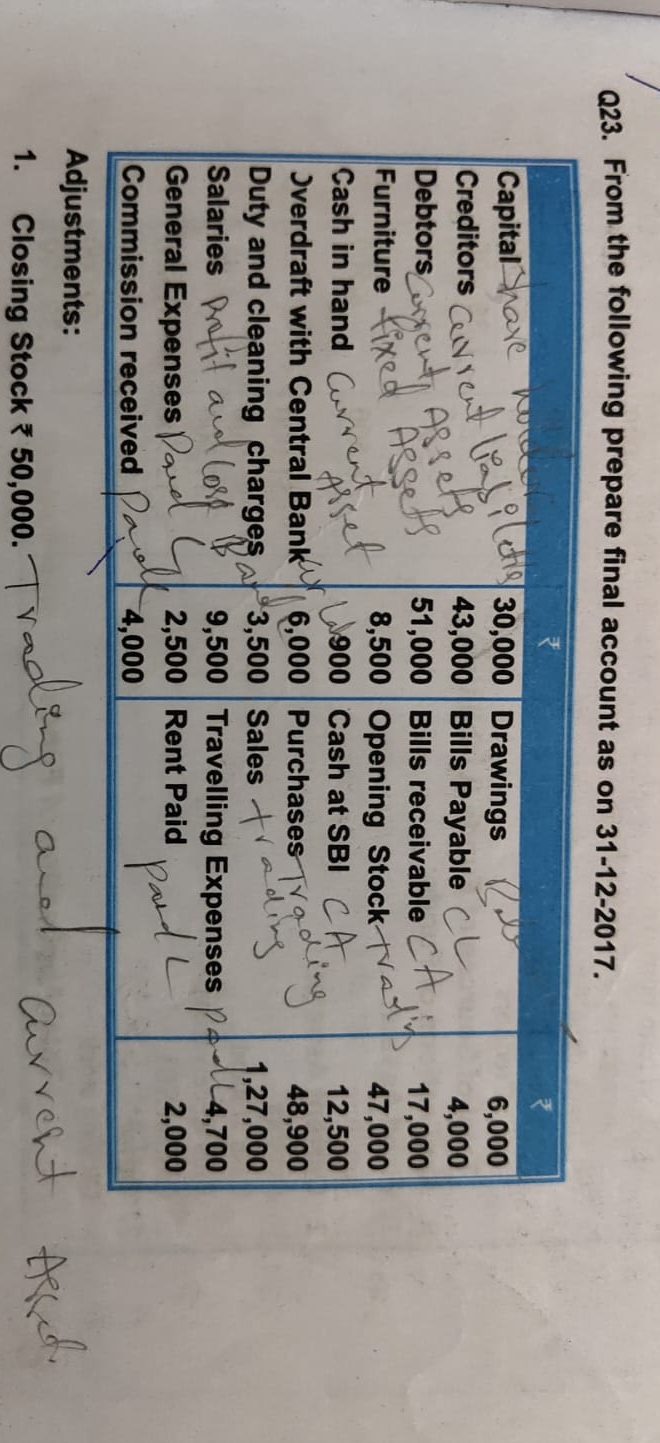 Q23. From the following prepare final account as on 31-12-2017.
₹ ₹
Capital Share holder 30,000 Drawings 6,000
Creditors current liabilities 43,000 Bills Payable CL 4,000
Debtors current Assets 51,000 Bills receivable CA 17,000
Furniture fixed Assets 8,500 Opening Stock trading 47,000
Cash in hand Current Asset 900 Cash at SBI CA 12,500
Overdraft with Central Bank 6,000 Purchases Trading 48,900
Duty and cleaning charges 3,500 Sales trading 1,27,000
Salaries Profit and Loss 9,500 Travelling Expenses P and L 4,700
General Expenses P and L 2,500 Rent Paid P and L 2,000
Commission received P and L 4,000
Adjustments:
1. Closing Stock ₹ 50,000. Trading and current Asset